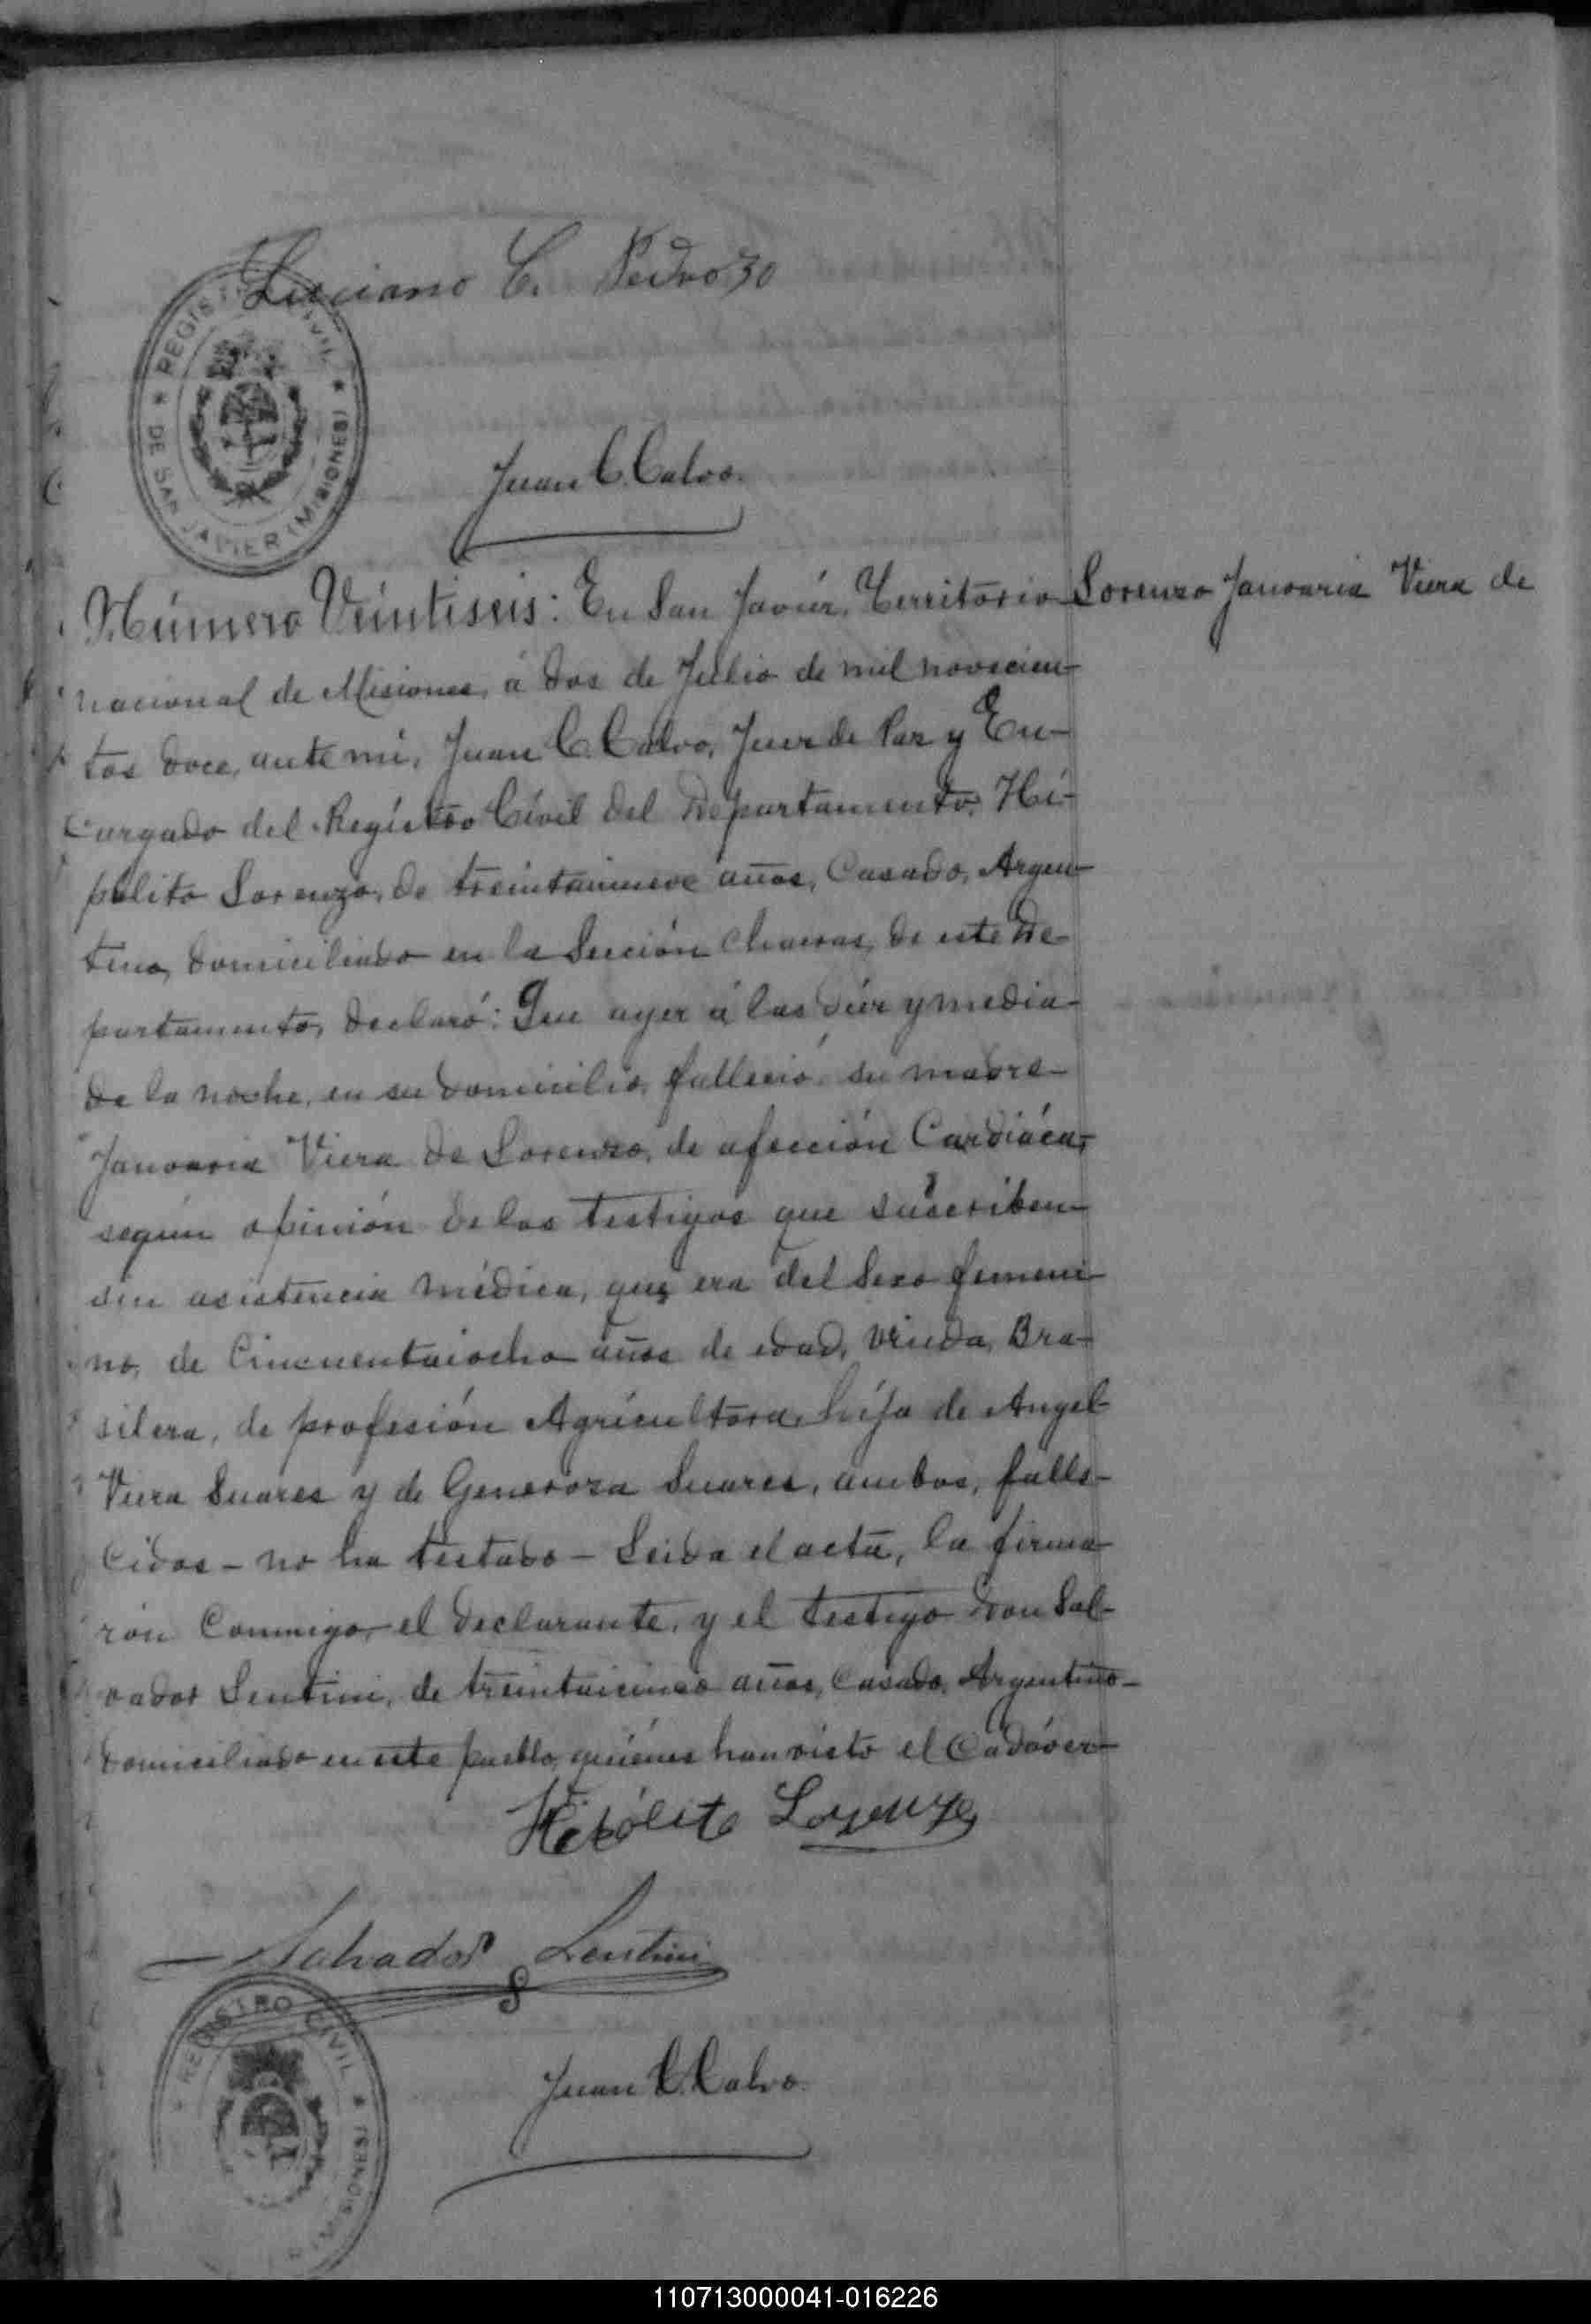 Luciano C. Pedrozo
REGISTRO CIVIL
DE SAN JAVIER (MISIONES)
Juan C. Calvo.
Número Veintiseis: En San Javiér, Territorio
Lorenzo Janoaria Viera de
nacional de Misiones, á dos de Julio de mil novecien-
tos doce, ante mí, Juan C. Calvo, Juez de Paz y En-
cargado del Registro Civil del Departamento, Hi-
pólito Lorenzo, de treintainueve años, Casado, Argen-
tino, domiciliado en la Sección Chacras, de este De-
partamento, declaró: Que ayer á las diez y media
de la noche, en su domicilio, falleció su madre
Janoaria Viera de Lorenzo, de afección Cardiáca,
según opinión de los testigos que suscriben
sin asistencia médica, que era del Sexo femeni-
no, de Cincuentaiocho años de edad, viuda, Bra-
silera, de profesión Agricultora, hija de Angel
Viera Suares y de Generoza Suares, ambos, falle-
cidos - no ha testado - Leida el acta, la firma-
rón Conmigo, el declarante, y el testigo don Sal-
vador Lentini, de treintaicinco años, Casado, Argentino
domiciliado en este pueblo, quiénes han visto el Cadáver
Hipólito Lorenzo
Salvador Lentini
REGISTRO CIVIL
(MISIONES)
Juan C. Calvo.
110713000041-016226